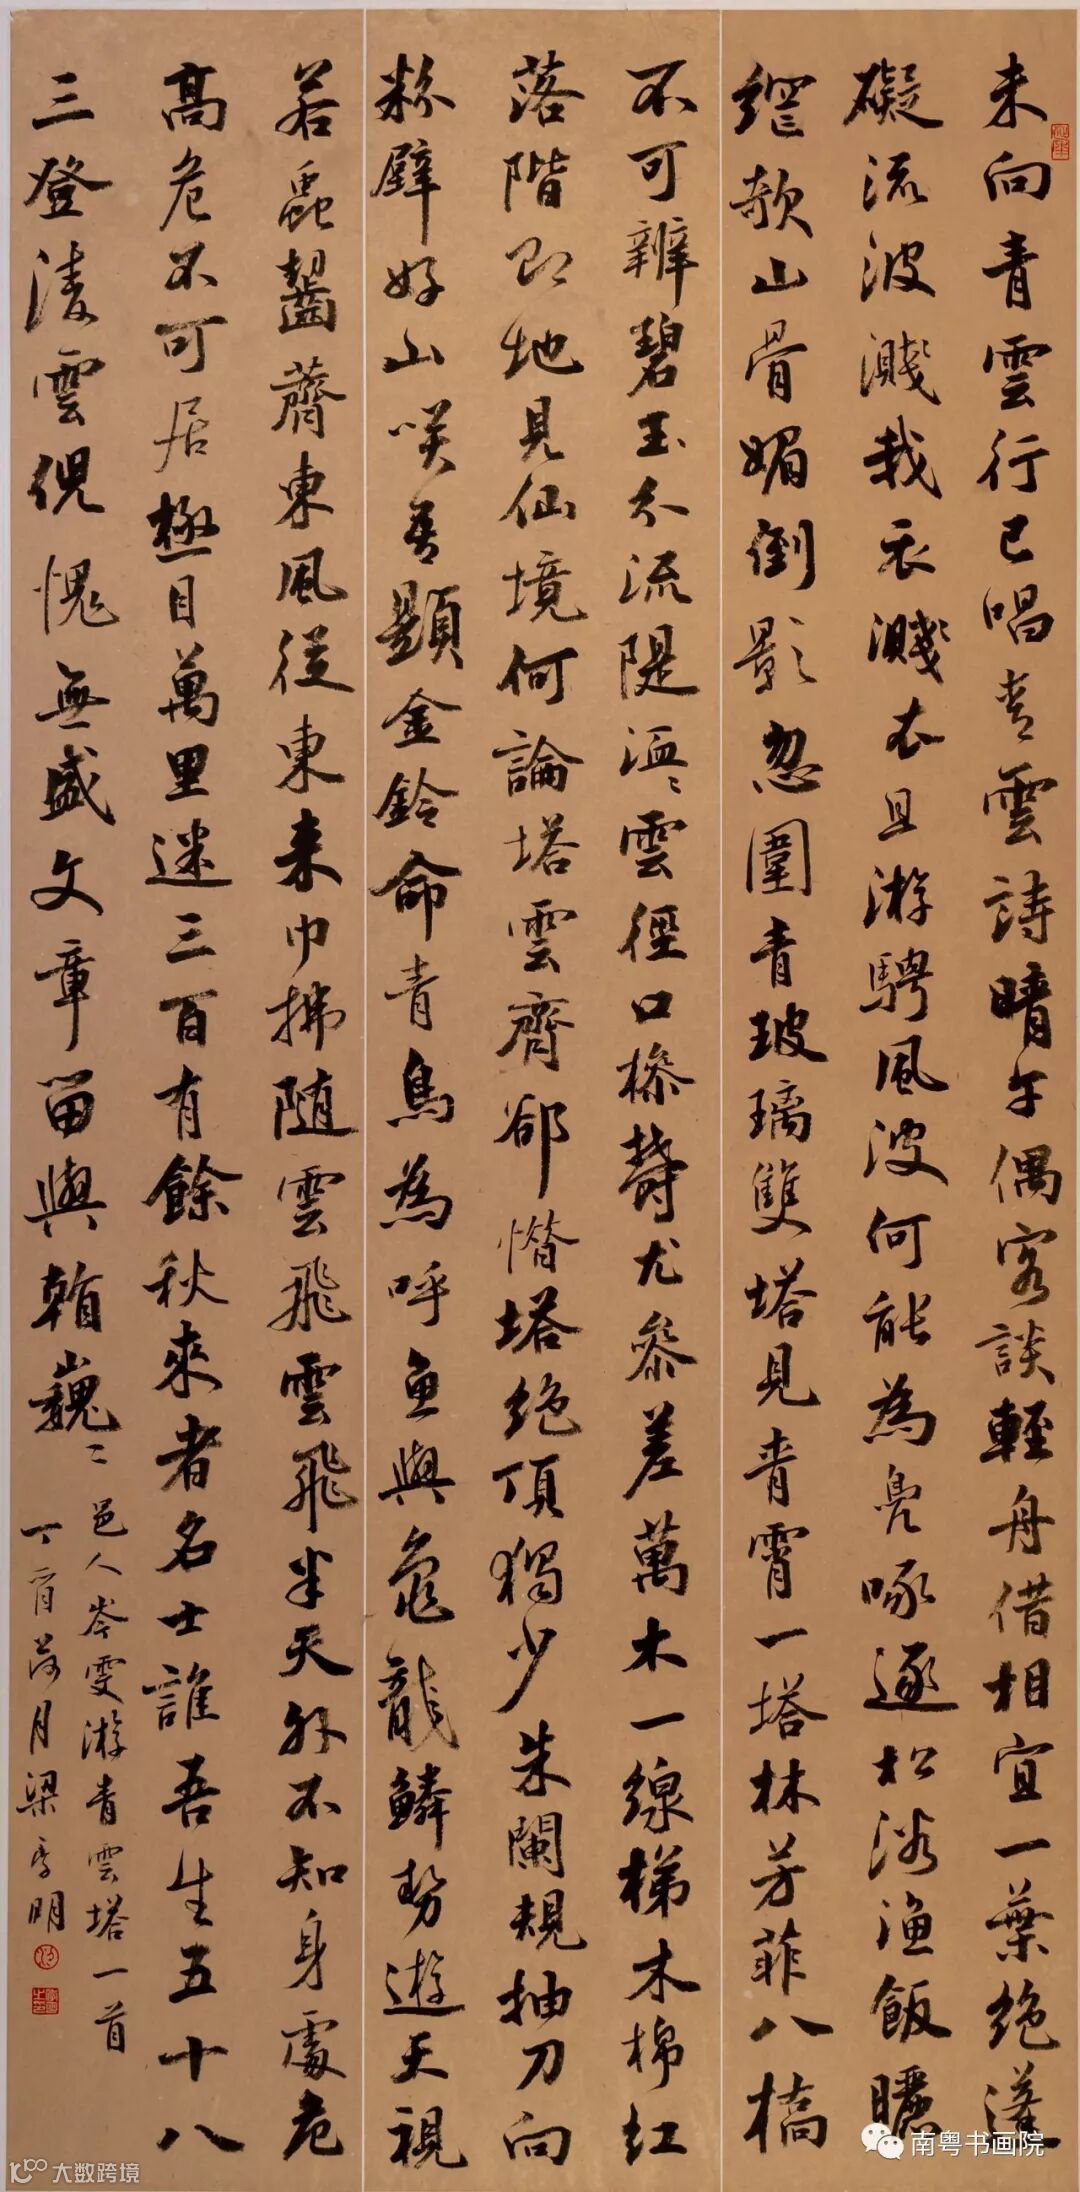 未向青雲行已唱青雲詩晴午偶客談輕舟借相宜一葉絶蓬
礙流波濺我衣濺衣且游騁風波何能為鳧啄逐松涛渔飯曬
纙欹山骨媚倒影忽圍青玻璃雙塔見青霄一塔林芳菲八槁
不可辨碧玉不流隄漚雲徑口樛樹尤參差萬木一線梯木棉红
落階即地見仙境何論塔雲齊郤憯塔绝顶獨少朱闌規抽刀向
粉壁好山咲吾顯金鈴命青鳥為呼魚與龜龍鱗势遊天視
若蟲齧薺東風從東來巾拂随雲飛雲飛半天外不知身處危
高危不可居極目萬里迷三百有餘秋來者名士誰吾生五十八
三登淩雲倪愧無盛文章留與賴巍〻
邑人岑雯游青雲塔一首
丁酉荷月梁季明
南粤书画院
大数跨境